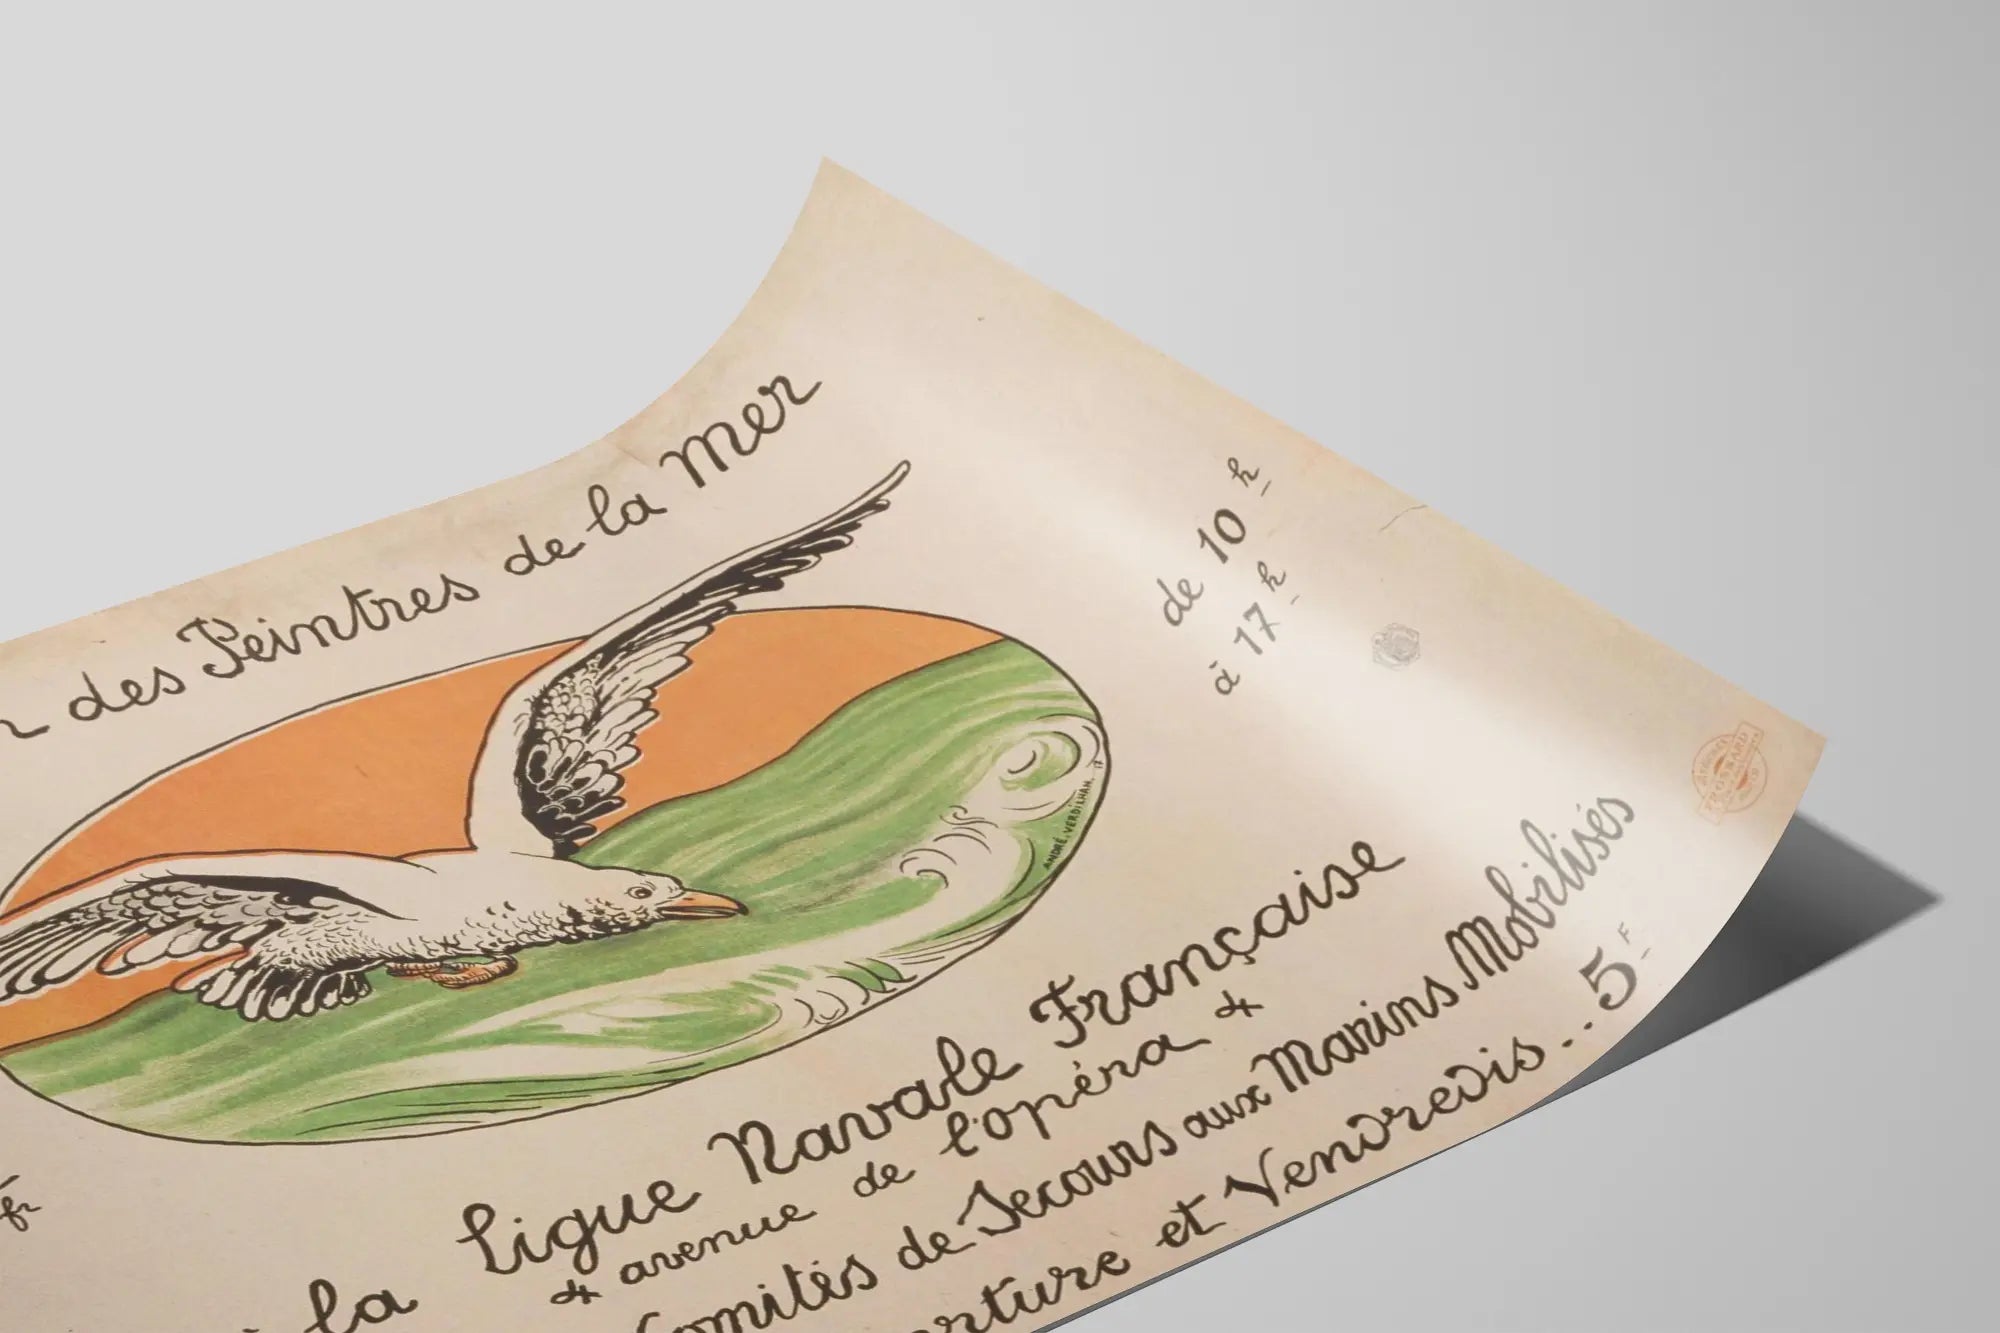 des Peintres de la Mer
de 10 h
à 17 h
ANDRÉ. VERDILHAN. 17
fr
la Ligue Navale Française
4 avenue de l'opéra 4
Comités de Secours aux Marins Mobilisés
et Vendredis . . 5 F